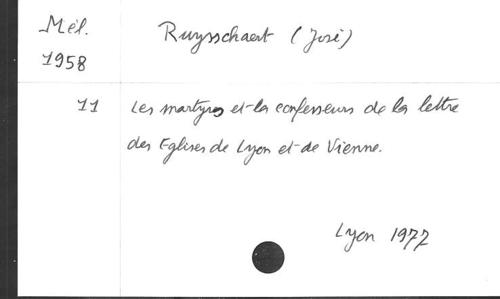 Mél. Ruysschaert (José)
1958
11 Les martyrs et les confesseurs de la lettre
des Eglises de Lyon et de Vienne.
Lyon 1977